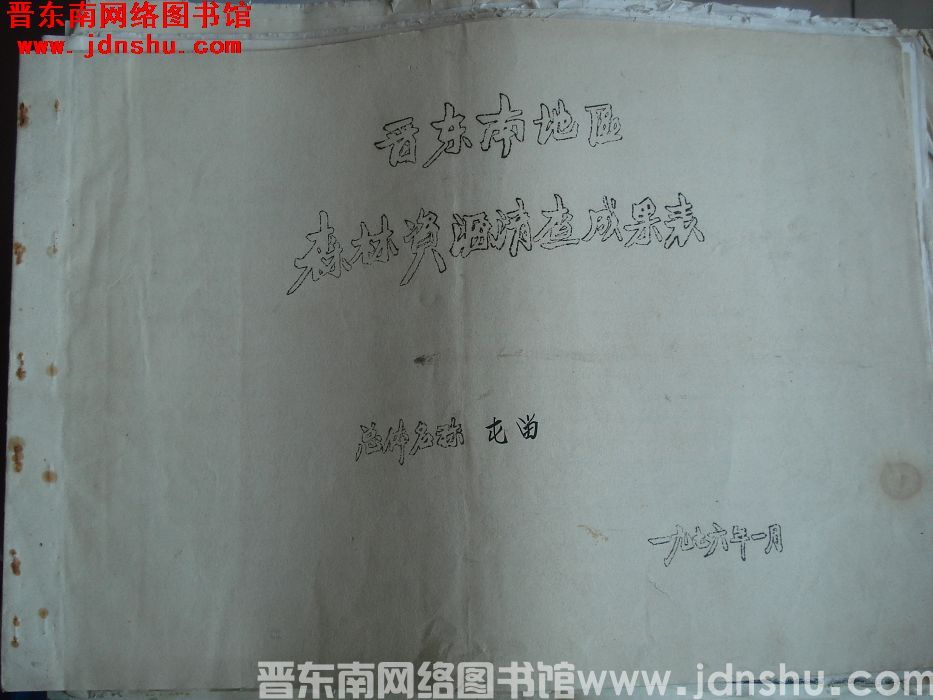 晋东南网络图书馆
www.jdnshu.com
晋东南地區
森林资源清查成果表
总体名称 屯留
一九七六年一月
晋东南网络图书馆www.jdnshu.com